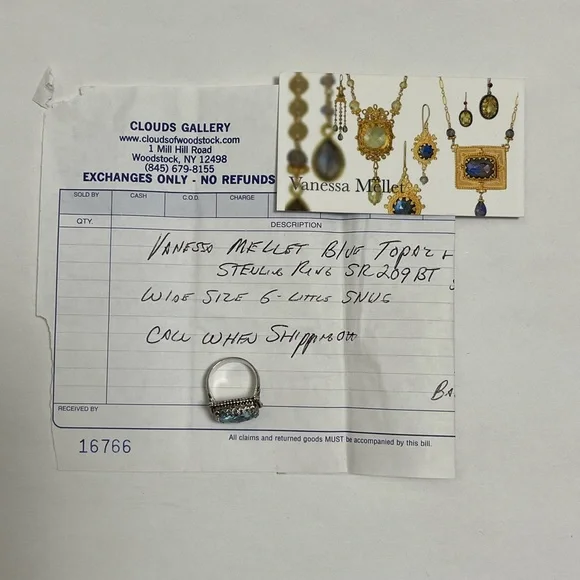 CLOUDS GALLERY
www.cloudsofwoodstock.com
1 Mill Hill Road
Woodstock, NY 12498
(845) 679-8155
EXCHANGES ONLY - NO REFUNDS
Vanessa Mellet
SOLD BY CASH C.O.D. CHARGE
QTY. DESCRIPTION
VANESSA MELLET BLUE TOPAZ +
STERLING RING SR209BT
WIDE SIZE 6 - LITTLE SNUG
CALL WHEN SHIPPING OUT
BA
RECEIVED BY
16766
All claims and returned goods MUST be accompanied by this bill.